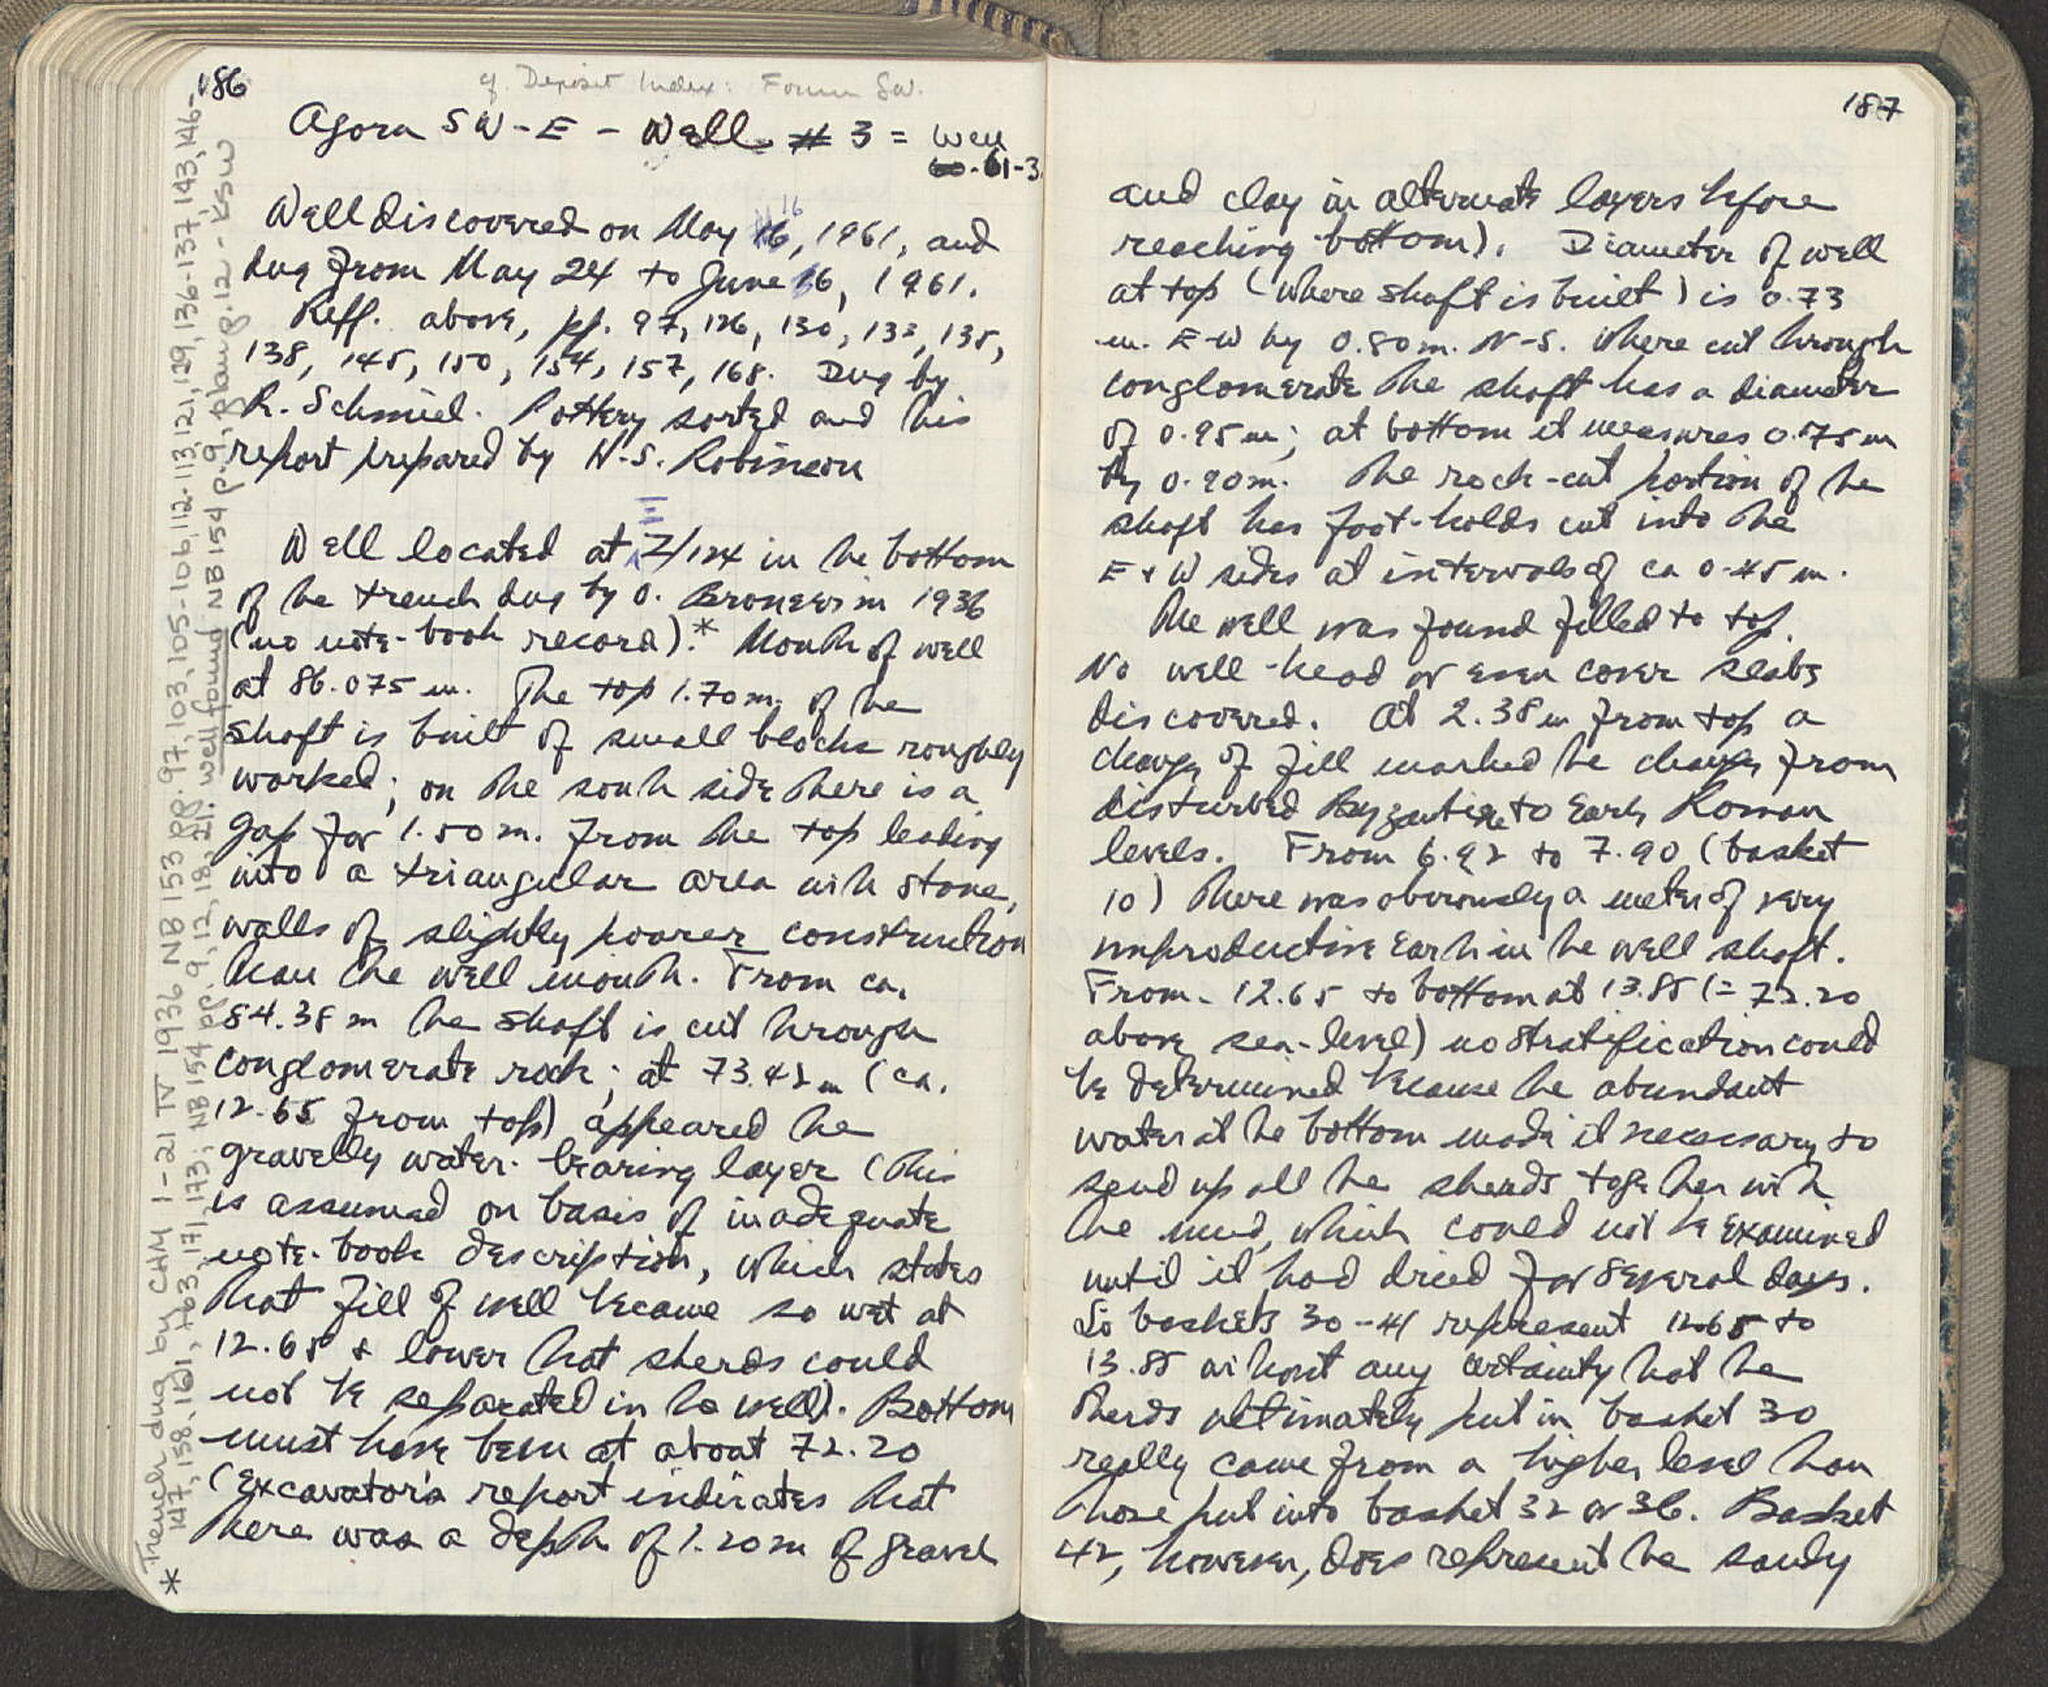 186
cf. Deposit Index: Forum SW.
Agora SW-E - Well # 3 = Well
60-61-3
Well discovered on May 16, 1961, and
dug from May 24 to June 16, 1961.
Reff. above, pp. 97, 126, 130, 133, 135,
138, 145, 150, 154, 157, 168. Dug by
R. Schmiel. Pottery sorted and this
report prepared by H.S. Robinson
Well located at Z/124 in the bottom
of the trench dug by O. Broneer in 1936
(no note-book record).* Mouth of well
at 86.075 m. The top 1.70 m. of the
shaft is built of small blocks roughly
worked; on the south side there is a
gap for 1.50 m. from the top leading
into a triangular area with stone
walls of slightly poorer construction
than the well mouth. From ca.
84.38 m the shaft is cut through
conglomerate rock; at 73.42 m (ca.
12.65 from top) appeared the
gravelly water-bearing layer (this
is assumed on basis of inadequate
note-book description, which states
that fill of well became so wet at
12.65 & lower that sherds could
not be separated in the well). Bottom
must have been at about 72.20
(Excavator's report indicates that
there was a depth of 1.20 m of gravel
* Trench dug by CHM 1-21 IV 1936 NB 153 pp. 97, 103, 105-106, 112-113, 121, 129, 136-137, 143, 146-
147, 158, 161, 163, 171, 173; NB 154 pp. 9, 12, 18, 21. Well found NB 154 p. 9, plan p. 12 - KSW
187
and clay in alternate layers before
reaching bottom). Diameter of well
at top (where shaft is built) is 0.73
m. E-W by 0.80 m. N-S. Where cut through
conglomerate the shaft has a diameter
of 0.95 m; at bottom it measures 0.75 m
by 0.90 m. The rock-cut portion of the
shaft has foot-holds cut into the
E & W sides at intervals of ca 0.45 m.
The well was found filled to top.
No well-head or even cover slabs
discovered. At 2.38 m from top a
change of fill marked the change from
disturbed Byzantine to Early Roman
levels. From 6.92 to 7.90 (basket
10) there was obviously a meter of very
unproductive earth in the well shaft.
From 12.65 to bottom at 13.85 (= 72.20
above sea-level) no stratification could
be determined because the abundant
water at the bottom made it necessary to
send up all the sherds together with
the mud, which could not be examined
until it had dried for several days.
So baskets 30-41 represent 12.65 to
13.85 without any certainty that the
sherds ultimately put in basket 30
really came from a higher level than
those put into basket 32 or 36. Basket
42, however, does represent the sandy